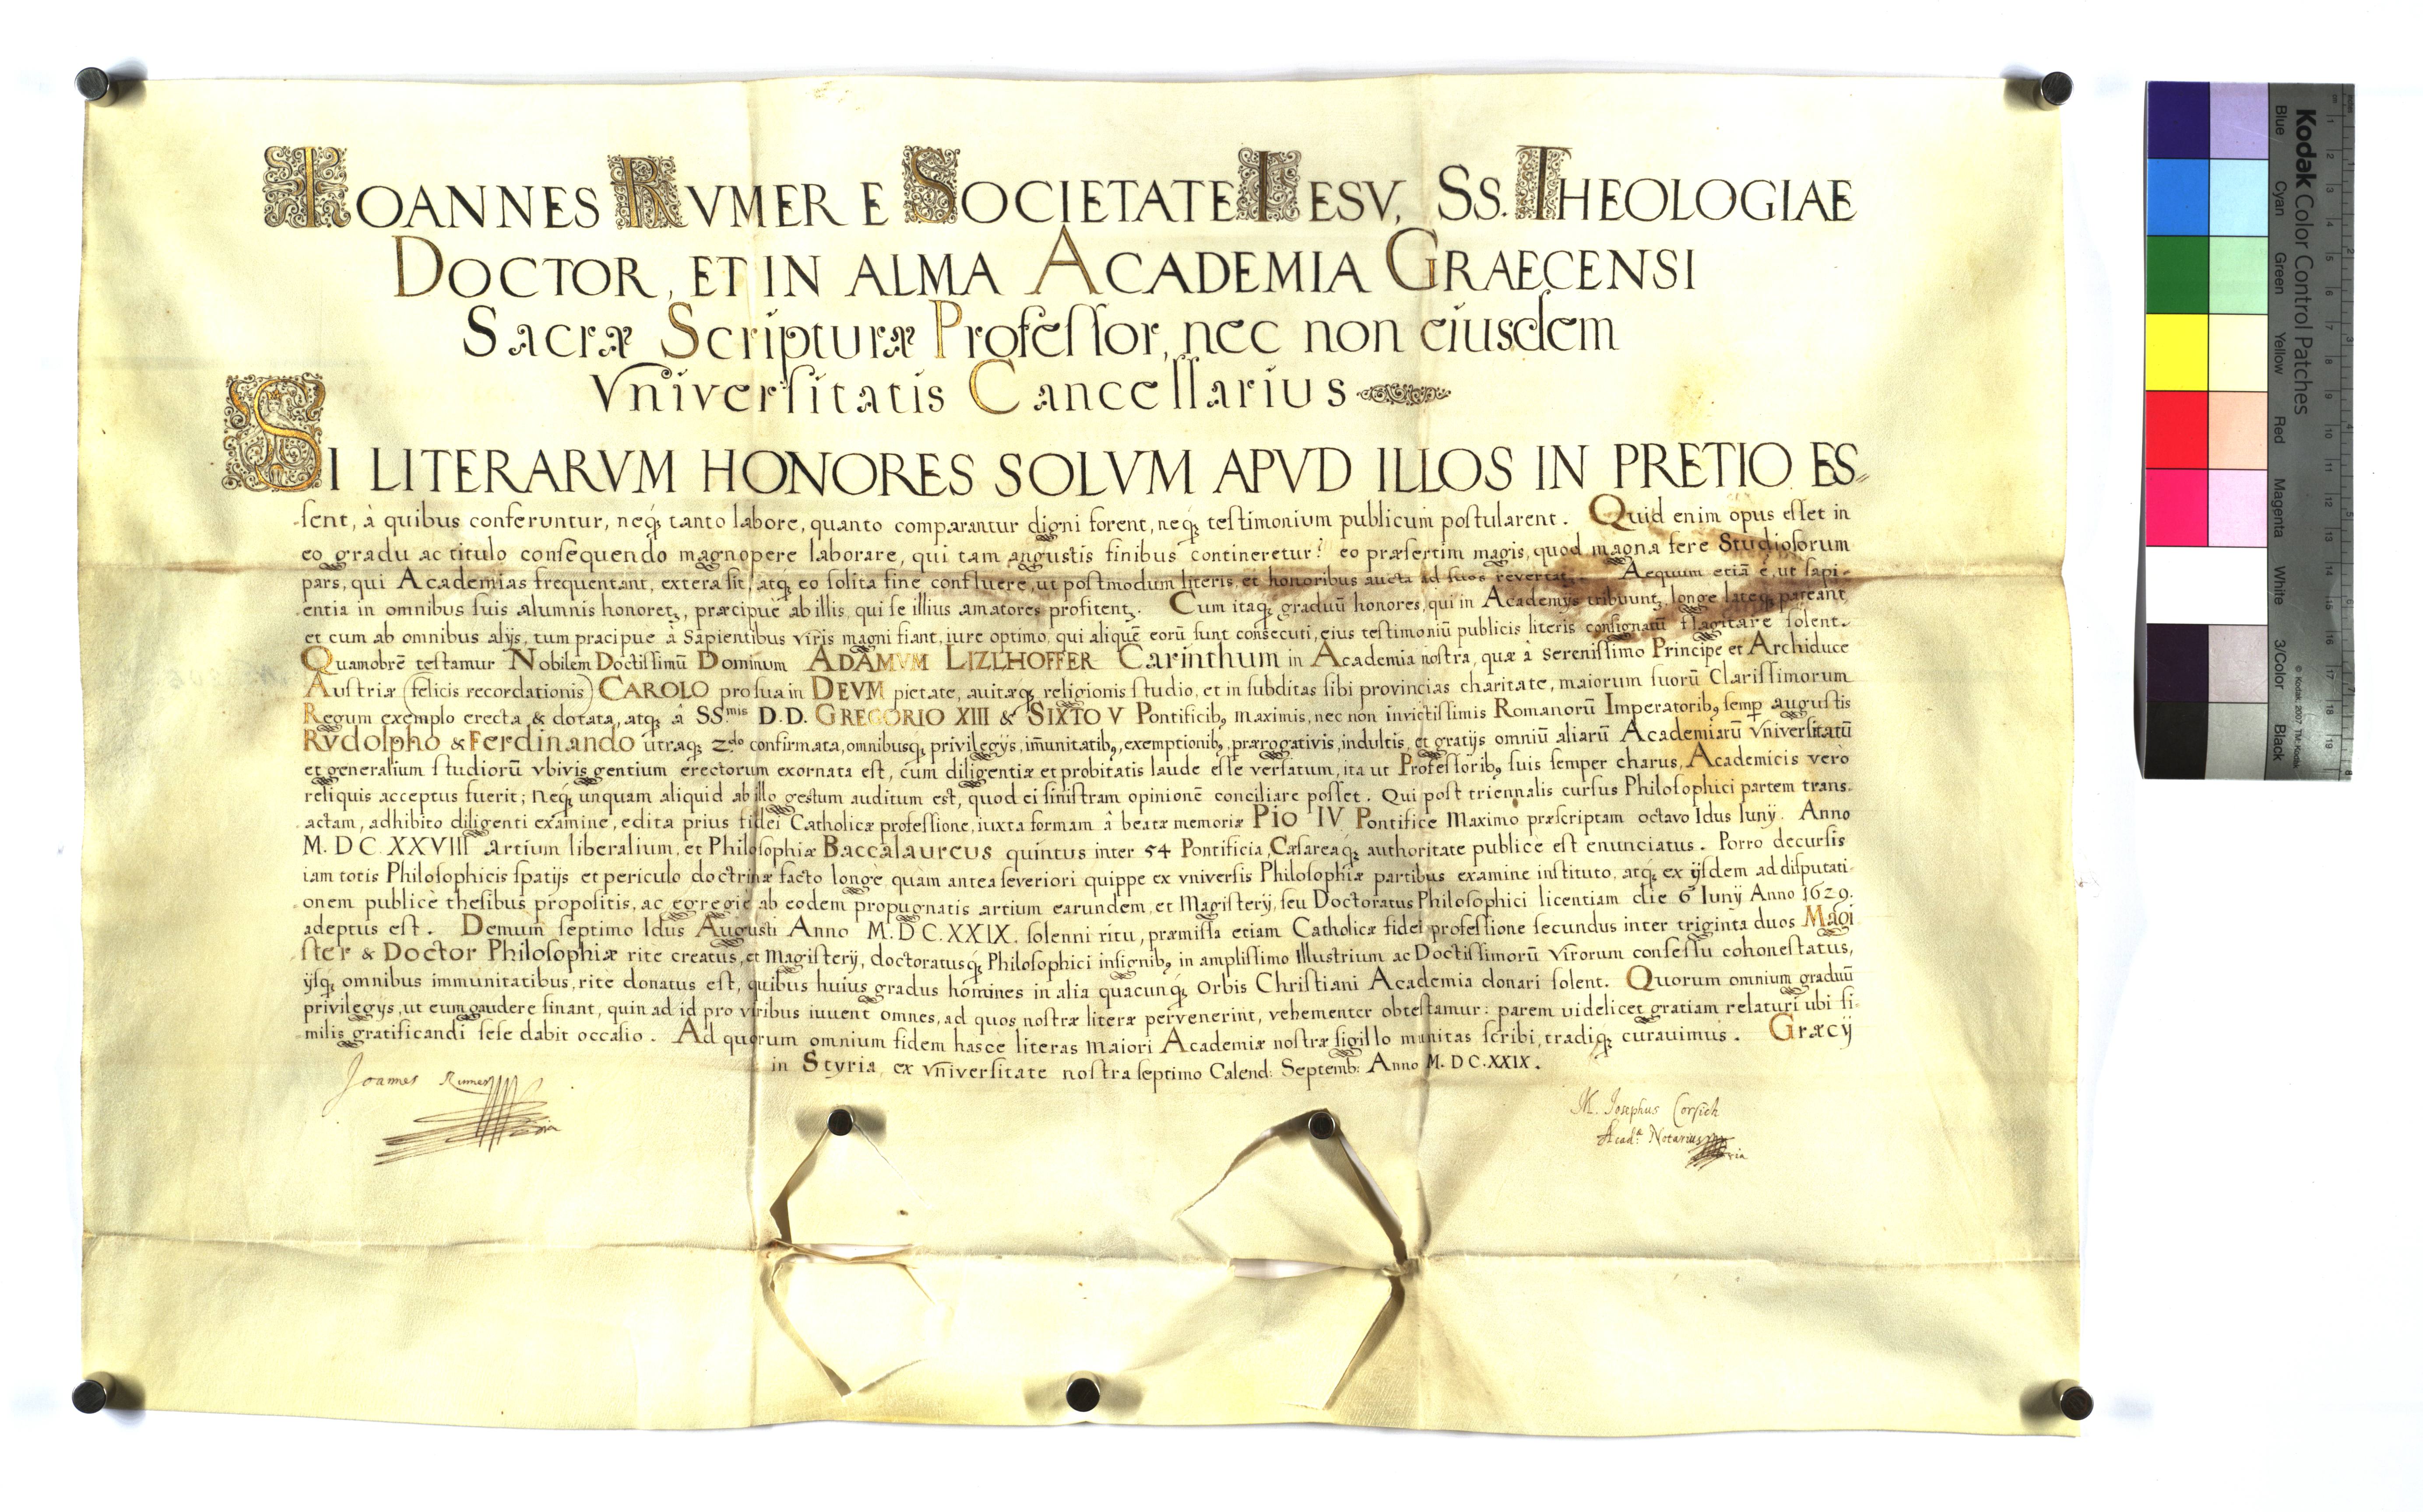 IOANNES RVMER E SOCIETATE IESV, SS. THEOLOGIAE
DOCTOR, ET IN ALMA ACADEMIA GRAECENSI
Sacræ Scripturæ Profeſſor, nec non eiusdem
Vniverſitatis Cancellarius
SI LITERARVM HONORES SOLVM APVD ILLOS IN PRETIO ES=
-ſent, à quibus conferuntur, neqꝫ tanto labore, quanto comparantur digni forent, neqꝫ teſtimonium publicum poſtularent. Quid enim opus eſſet in
eo gradu ac titulo conſequendo magnopere laborare, qui tam angustis finibus contineretur? eo præſertim magis, quod magna fere Studioſorum
pars, qui Academias frequentant, extera ſit, atqꝫ eo ſolita ſine confluere, ut poſtmodum literis, et honoribus aucta ad ſuos revertat. Aequum etiā ē, ut ſapi-
entia in omnibus ſuis alumnis honoretꝫ, præcipuè ab illis, qui ſe illius amatores profitentꝫ. Cum itaqꝫ graduū honores, qui in Academijs tribuuntꝫ, longe lateqꝫ pateant,
et cum ab omnibus alijs, tum pracipue à Sapientibus viris magni fiant, iure optimo, qui aliquē eorū ſunt consecuti, eius teſtimoniū publicis literis conſignatū flagitare ſolent.
Quamobrē teſtamur Nobilem Doctiſſimū Dominum ADAMVM LIZLHOFFER Carinthum in Academia noſtra, quæ à Sereniſſimo Principe et Archiduce
Auſtriæ (felicis recordationis) CAROLO pro ſua in DEVM pietate, avitæqꝫ religionis ſtudio, et in ſubditas ſibi provincias charitate, maiorum ſuorū Clariſſimorum
Regum exemplo erecta & dotata, atqꝫ â SSmis D.D. GREGORIO XIII & SIXTO V Pontificibꝫ Maximis, nec non invictiſſimis Romanorū Imperatoribꝫ ſemp auguſtis
Rvdolpho & Ferdinando utraqꝫ 2do confirmata, omnibusqꝫ privilegijs, im̄unitatibꝫ, exemptionibꝫ, prærogativis, indultis, et gratijs omniū aliarū Academiarū Vniverſitatū
et generalium ſtudiorū vbivis gentium erectorum exornata eſt, cum diligentiæ et probitatis laude eſſe verſatum, ita ut Profeſſoribꝫ ſuis ſemper charus, Academicis verò
reliquis acceptus fuerit; neqꝫ unquam aliquid ab illo geſtum auditum est, quod ei ſiniſtram opinionē conciliare poſſet. Qui poſt triennalis curſus Philoſophici partem trans-
actam, adhibito diligenti examine, edita prius fidei Catholicæ profeſſione, iuxta formam â beatæ memoriæ Pio IV Pontifice Maximo præſcriptam octavo Idus Iunij. Anno
M.DC.XXVIII artium liberalium, et Philoſophiæ Baccalaureus quintus inter 54 Pontificia, Cæſareaqꝫ authoritate publice eſt enunciatus. Porro decurſis
iam totis Philoſophicis ſpatijs et periculo doctrinæ facto longè, quàm antea ſeveriori quippe ex vniverſis Philoſophiæ partibus examine inſtituto, atqꝫ ex ijſdem ad diſputati-
onem publicè theſibus propoſitis, ac egregiè ab eodem propugnatis artium earundem, et Magiſterij, ſeu Doctoratus Philoſophici licentiam die 6 Iunij Anno 1629.
adeptus eſt. Demum ſeptimo Idus Augusti Anno M.DC.XXIX. ſolenni ritu, præmiſſa etiam Catholicæ fidei profeſſione ſecundus inter triginta duos Magi
ſter & Doctor Philoſophiæ rite creatus, et Magiſterij, doctoratusqꝫ Philoſophici inſignibꝫ in ampliſſimo Illustrium ac Doctiſſimorū Virorum conſeſſu cohoneſtatus,
ijſqꝫ omnibus immunitatibus, rite donatus eſt, quibus huius gradus homines in alia quacunqꝫ Orbis Chriſtiani Academia donari ſolent. Quorum omnium graduū
privilegijs, ut eum gaudere ſinant, quin ad id pro viribus iuvent omnes, ad quos noſtræ literæ pervenerint, vehementer obteſtamur: parem videlicet gratiam relaturi ubi ſi-
milis gratificandi ſeſe dabit occaſio. Ad quorum omnium fidem hasce literas maiori Academiæ noſtræ ſigillo munitas ſcribi, tradiqꝫ curavimus. Græcij
in Styria, ex Vniverſitate noſtra ſeptimo Calend: Septemb: Anno M.DC.XXIX.
Joannes Rumer
M. Josephus Corsich
Acad.ᵃ Notarius
Kodak Color Control Patches
Blue Cyan Green Yellow Red Magenta White 3/Color Black
© Kodak, 2007 TM: Kodak